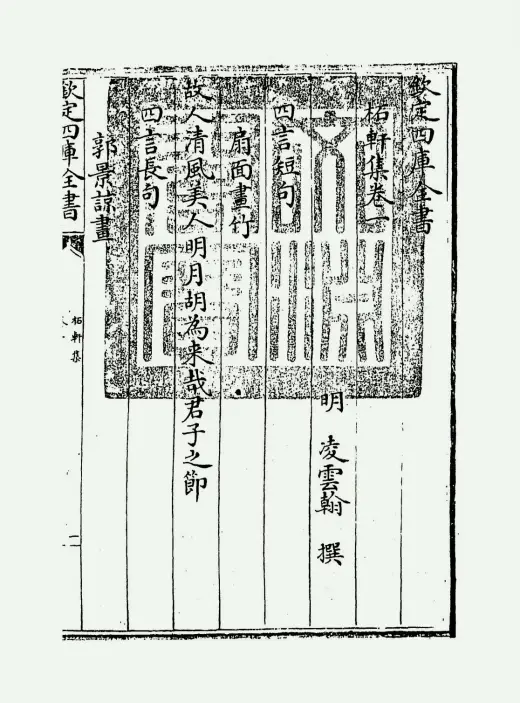 欽定四庫全書
柘軒集卷一
明 凌雲翰 撰
四言短句
扇面畫竹
故人清風美人明月胡為来哉君子之節
四言長句
郭景諒畫
欽定四庫全書
柘軒集